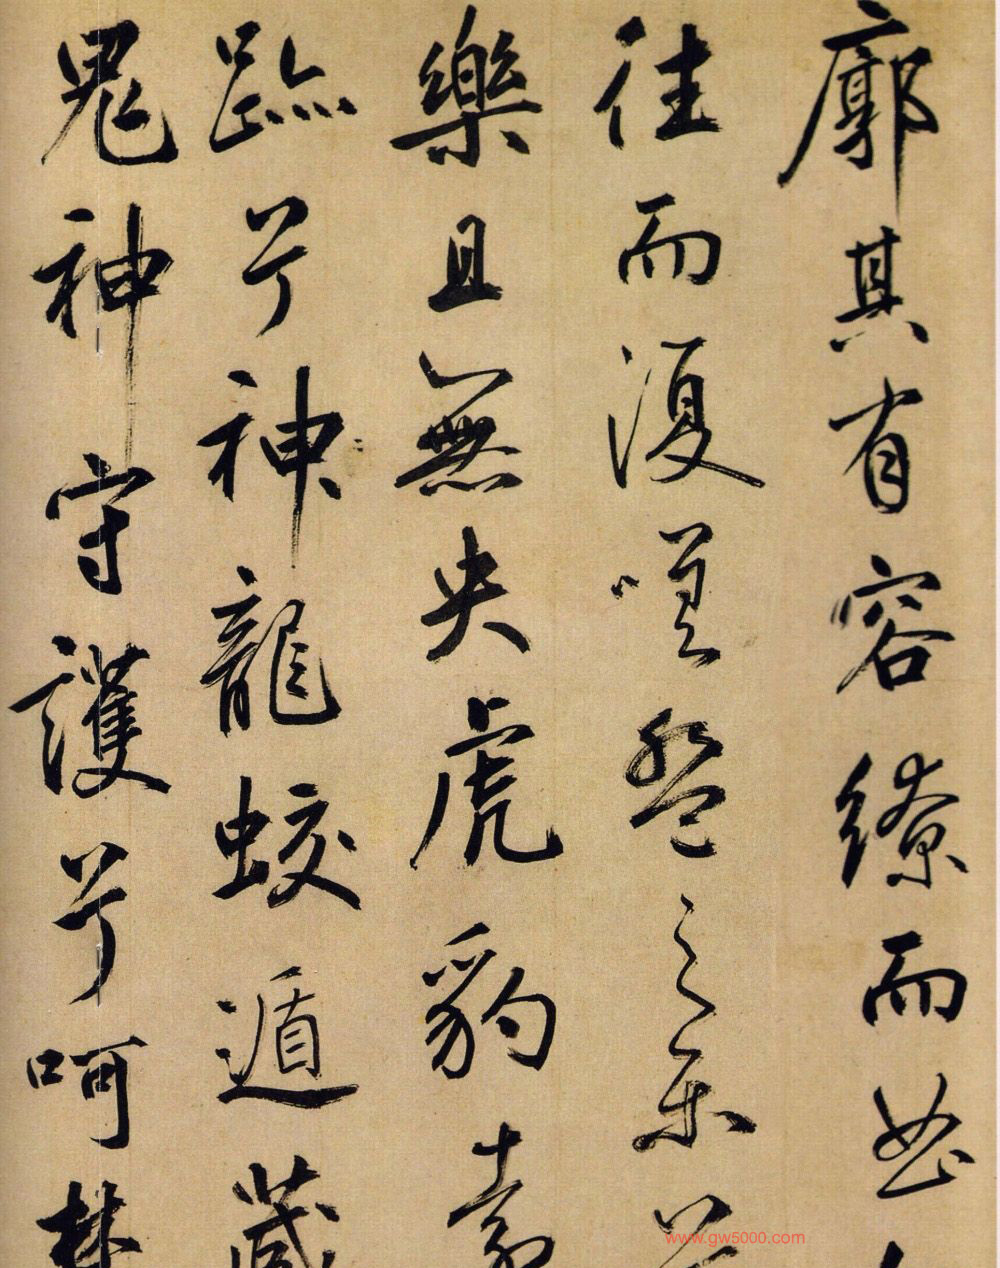 廓其有容繚而曲
往而復嗟盤之樂兮
樂且無央虎豹遠
跡兮神龍蛟遁藏
鬼神守護兮呵禁
www.gw5000.com